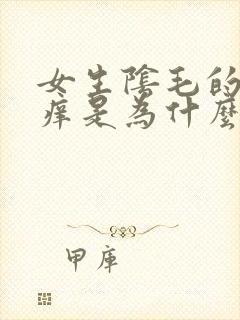 女生陰毛的
痒是為什麼
甲庫